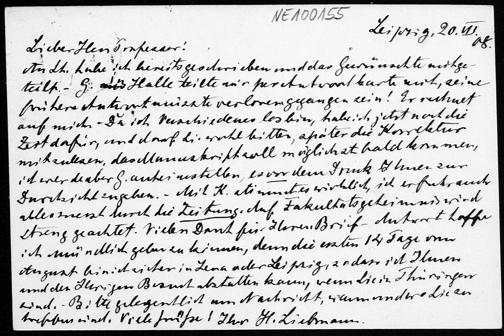 NEA00155
Leipzig, 20. VII 08.
Lieber Herr Professor!
An St. habe ich bereits geschrieben und das Gewünschte mitge-
teilt. – G. Halle teilte mir per Antwortkarte mit, seine
frühere Antwort müsste verloren gegangen sein! Er rechnet
auf mich. – Da ich Verschiedenes los bin, habe ich jetzt noch die
Zeit dafür, und darf Sie wohl bitten, später die Korrektur
mitzulesen, das Manuskript soll möglichst bald kommen,
ich werde aber G. anheimstellen, es vor dem Druck Ihnen zur
Durchsicht zu geben. – Mit K. stimmt es wirklich, ich erfuhr auch
alles zuerst durch die Zeitung. Auf Fakultätsgeheimnis wird
streng geachtet. Vielen Dank für Ihren Brief – Antwort hoffe
ich mündlich geben zu können, denn die ersten 14 Tage vom
August bin ich sicher in Jena oder Leipzig, sodass ich Ihnen
und den Ihrigen Besuch abstatten kann, wenn Sie in Thüringen
sind. – Bitte gelegentlich um Nachricht, wann und wo Sie zu
treffen sind. Viele Grüße! Ihr H. Liebmann.